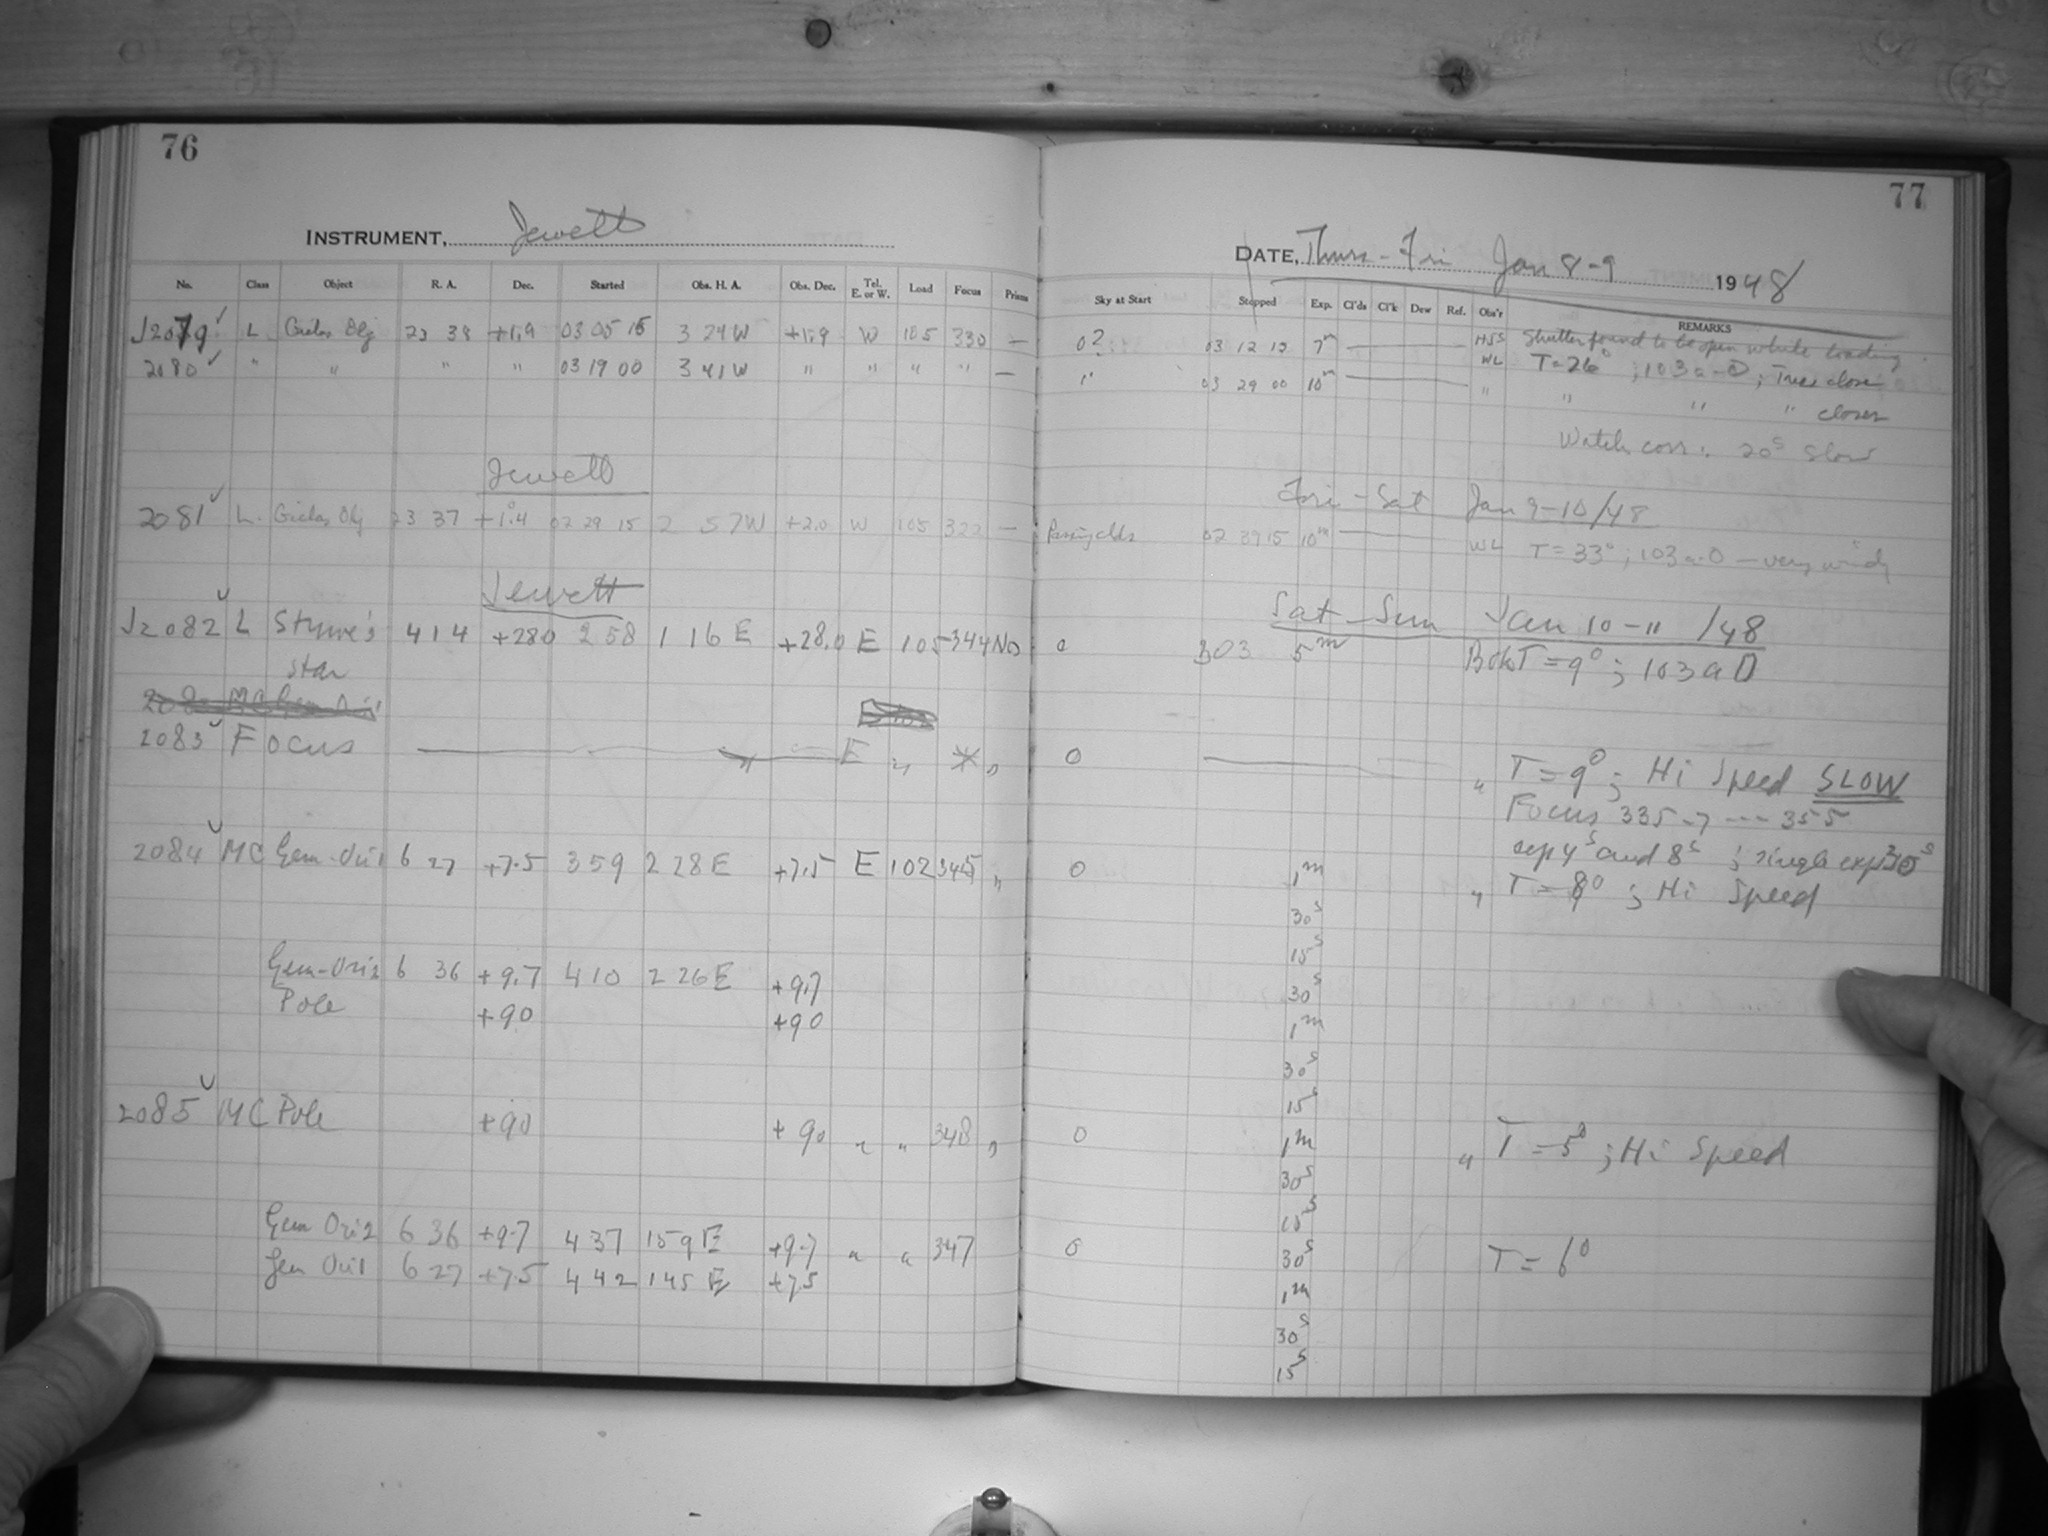 76
77
INSTRUMENT, Jewett
DATE, Thurs - Fri Jan 8-9 1948
No. Class Object R. A. Dec. Started Obs. H. A. Obs. Dec. Tel. E. or W. Load Focus Prism
Sky at Start Stopped Exp. Cl'ds Cl'k Dew Ref. Obs'r REMARKS
J2079 L Giclas Obj 23 38 +1.9 03 05 15 3 24 W +1.9 W 105 330 — 0? 03 12 15 7m HSS Shutter found to be open while loading
WL T=26° ; 103a-O ; Trees close
2080 " " " " 03 19 00 3 41 W " " " " — " 03 29 00 10m " " " " closer
Watch corr: 20s slow
Jewett Fri - Sat Jan 9-10/48
2081 L. Giclas Obj 23 37 +1.4 02 29 15 2 57 W +2.0 W 105 322 — Passing clds 02 39 15 10m WL T=33° ; 103a-O — very windy
Jewett Sat - Sun Jan 10-11 /48
J2082 L Struve's 4 14 +28.0 2 58 1 16 E +28.0 E 105 344 No 0 303 5m Bok T=9° ; 103aO
star
2083 Focus E " * " 0 " T=9° ; Hi Speed SLOW
Focus 335-7 --- 355
sep 4s and 8s ; single exp 30s
2084 MC Gem-Ori 1 6 27 +7.5 3 59 2 28 E +7.5 E 102 345 " 0 1m " T=8° ; Hi Speed
30s
15s
Gem-Ori 2 6 36 +9.7 4 10 2 26 E +9.7 30s
Pole +90 +90 1m
30s
15s
2085 MC Pole +90 +90 " " 348 " 0 1m " T=5° ; Hi Speed
30s
15s
Gem Ori 2 6 36 +9.7 4 37 1 59 E +9.7 " " 347 0 30s T=6°
Gem Ori 1 6 27 +7.5 4 42 1 45 E +7.5 1m
30s
15s